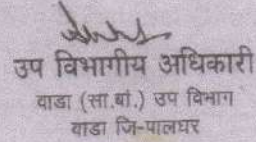 उप विभागीय अधिकारी
वाडा (सा.बां.) उप विभाग
वाडा जि-पालघर